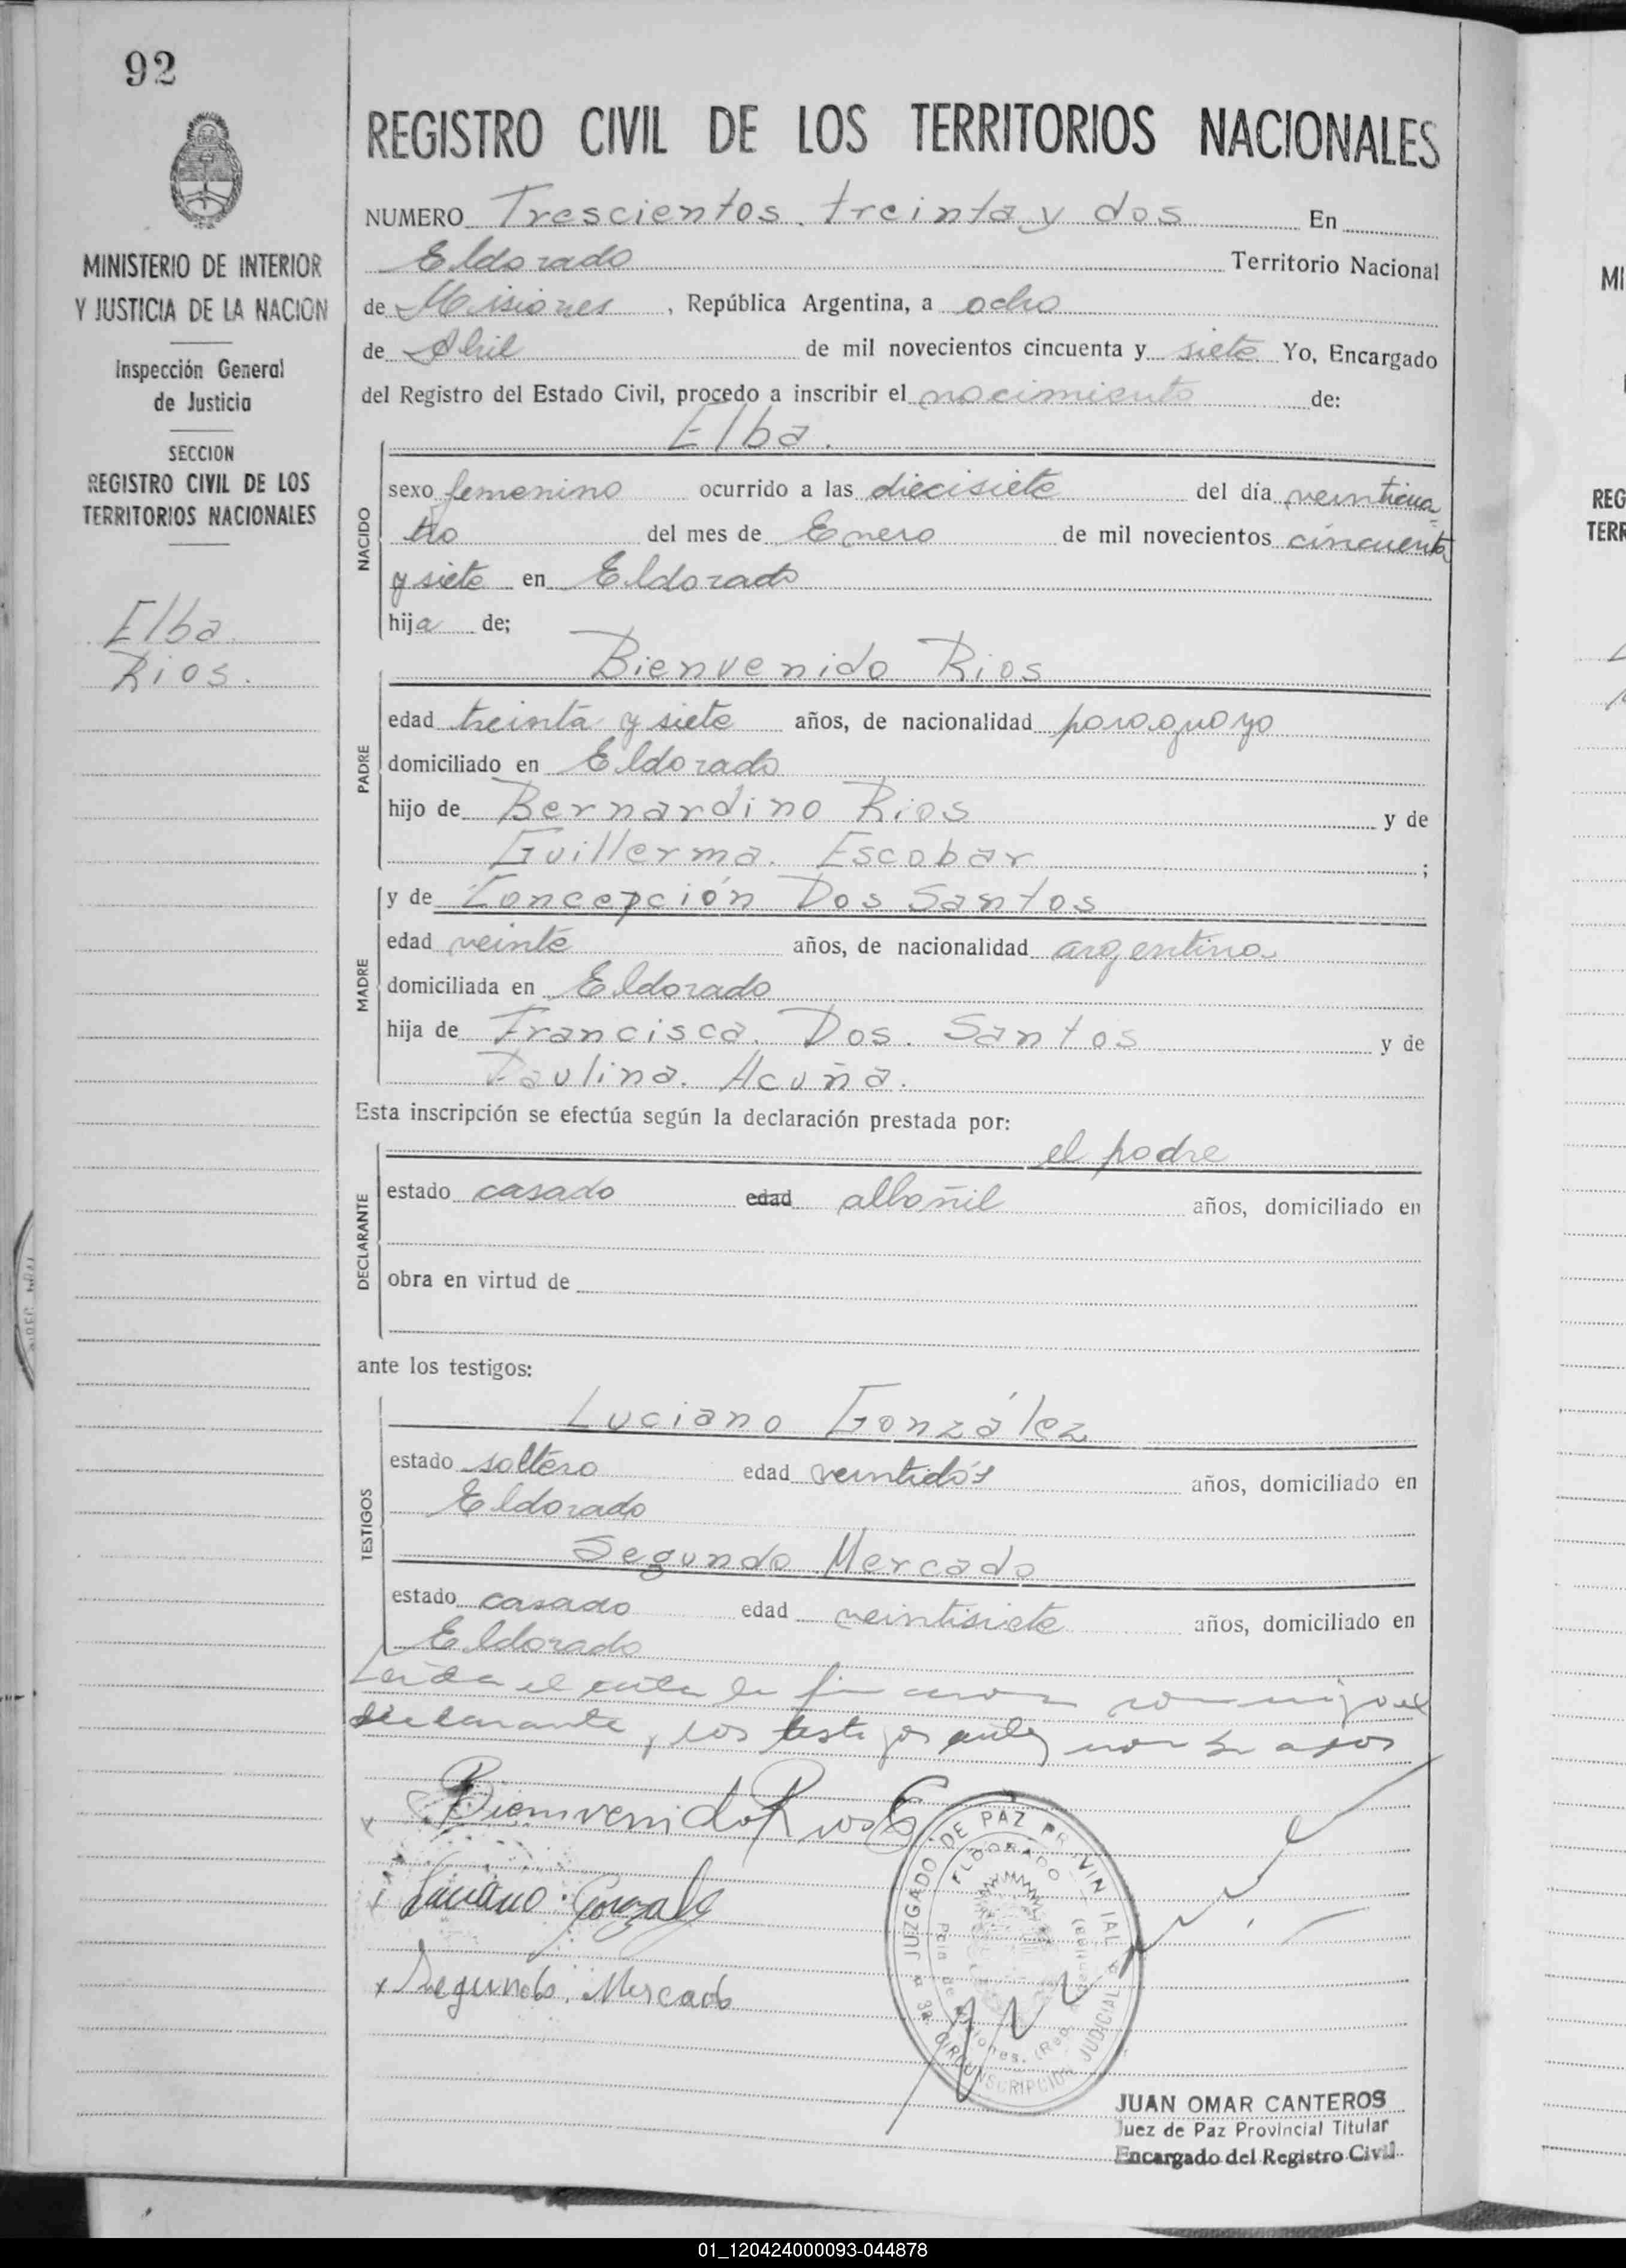 92
REGISTRO CIVIL DE LOS TERRITORIOS NACIONALES
MINISTERIO DE INTERIOR
Y JUSTICIA DE LA NACION
Inspección General
de Justicia
SECCION
REGISTRO CIVIL DE LOS
TERRITORIOS NACIONALES
Elba
Rios.
NUMERO Trescientos treinta y dos En
Eldorado Territorio Nacional
de Misiones, República Argentina, a ocho
de Abril de mil novecientos cincuenta y siete Yo, Encargado
del Registro del Estado Civil, procedo a inscribir el nacimiento de:
Elba.
NACIDO
sexo femenino ocurrido a las diecisiete del día veinticua-
tro del mes de Enero de mil novecientos cincuenta
y siete en Eldorado
hija de;
Bienvenido Rios
PADRE
edad treinta y siete años, de nacionalidad paraguayo
domiciliado en Eldorado
hijo de Bernardino Rios y de
Guillerma. Escobar ;
y de Concepción Dos Santos
MADRE
edad veinte años, de nacionalidad argentina
domiciliada en Eldorado
hija de Francisca. Dos. Santos y de
Paulina. Acuña.
Esta inscripción se efectúa según la declaración prestada por:
el padre
DECLARANTE
estado casado edad albañil años, domiciliado en
obra en virtud de
ante los testigos:
Luciano González
TESTIGOS
estado soltero edad veintidós años, domiciliado en
Eldorado
Segundo Mercado
estado casado edad veintisiete años, domiciliado en
Eldorado
Leida el acta la firmaron conmigo el
declarante y los testigos antes nombrados
Bienvenido Rios E
Luciano Gonzalez
x Segundo. Mercado
JUZGADO DE PAZ PROVINCIAL
ELDORADO
3ª CIRCUNSCRIPCION JUDICIAL
JUAN OMAR CANTEROS
Juez de Paz Provincial Titular
Encargado del Registro Civil
MI
REG
TERR
01_120424000093-044878